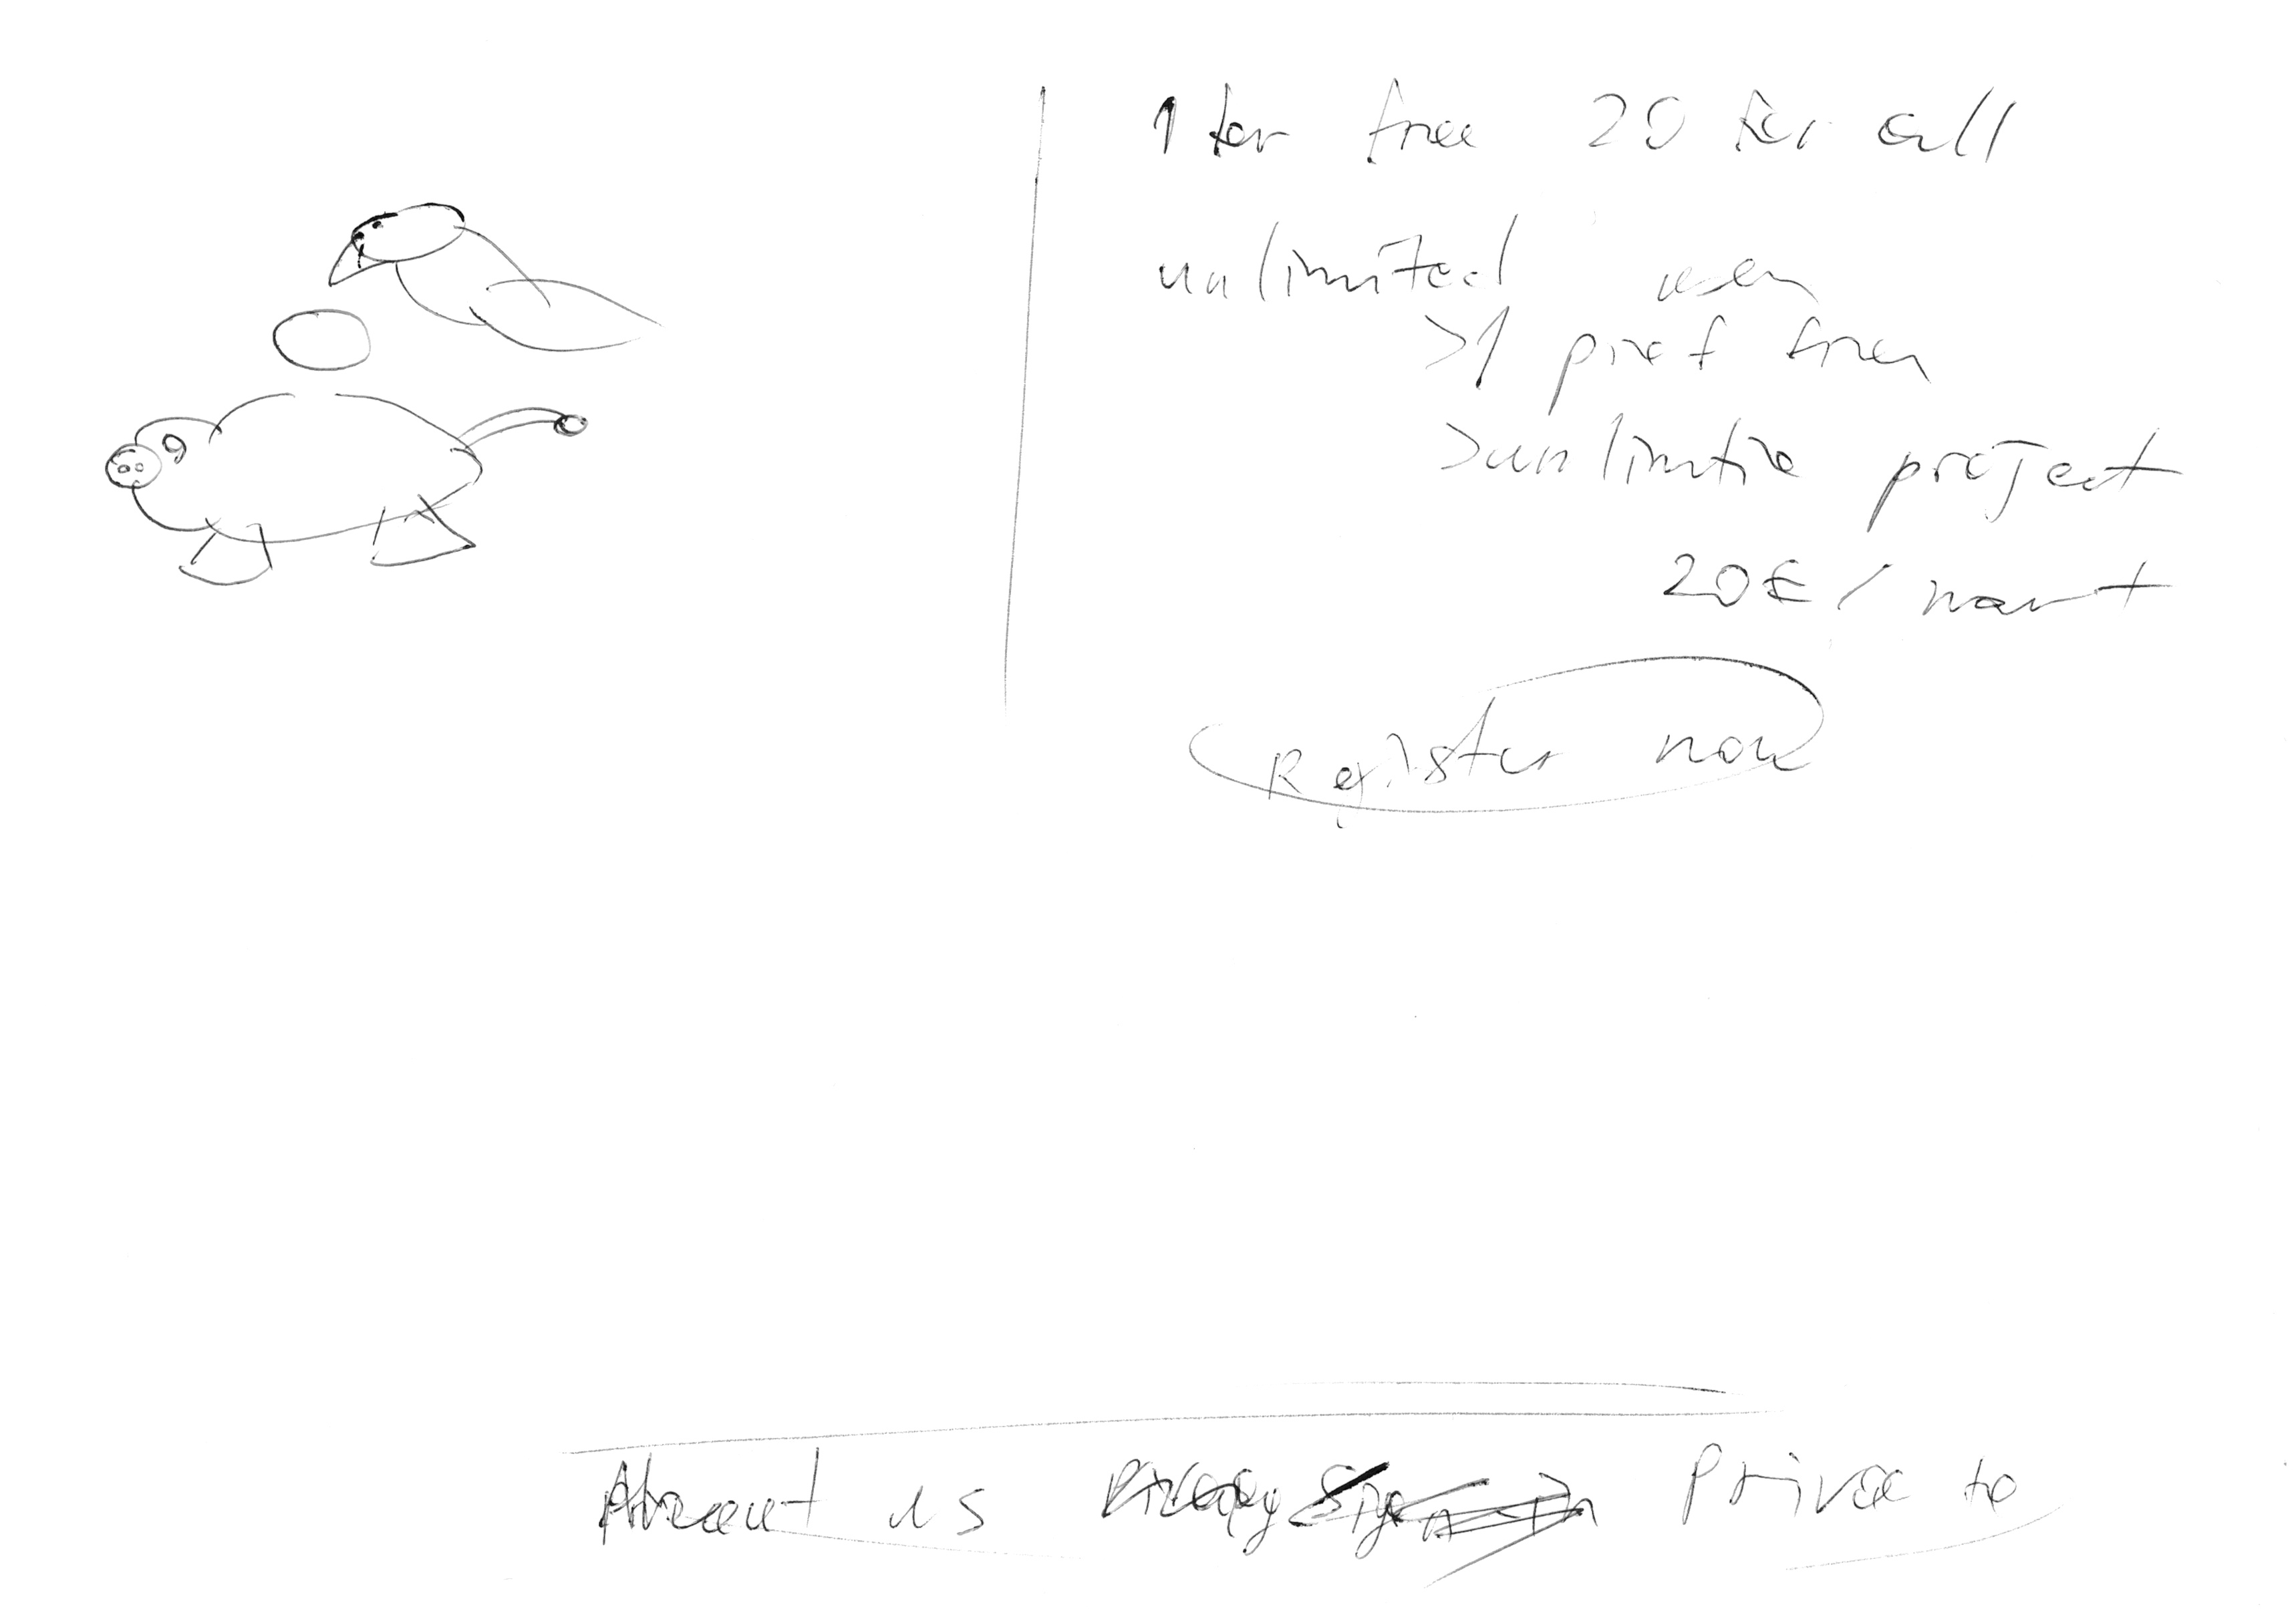 1 for free 20 for all
unlimited user
>1 free
>unlimitie project
20€ /
Register now
us Privacy